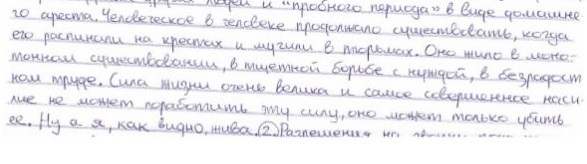 людей и "пробного периода" в виде домашне-
го ареста. Человеческое в человеке продолжало существовать, когда
его распинали на крестах и мучили в тюрьмах. Оно жило в моно-
тонном существовании, в тщетной борьбе с нуждой, в безрадост
ном труде. Сила жизни очень велика и самое совершенное наси-
лие не может поработить эту силу, оно может только убить
ее. Ну а я, как видно, жива. ② Разрешения на